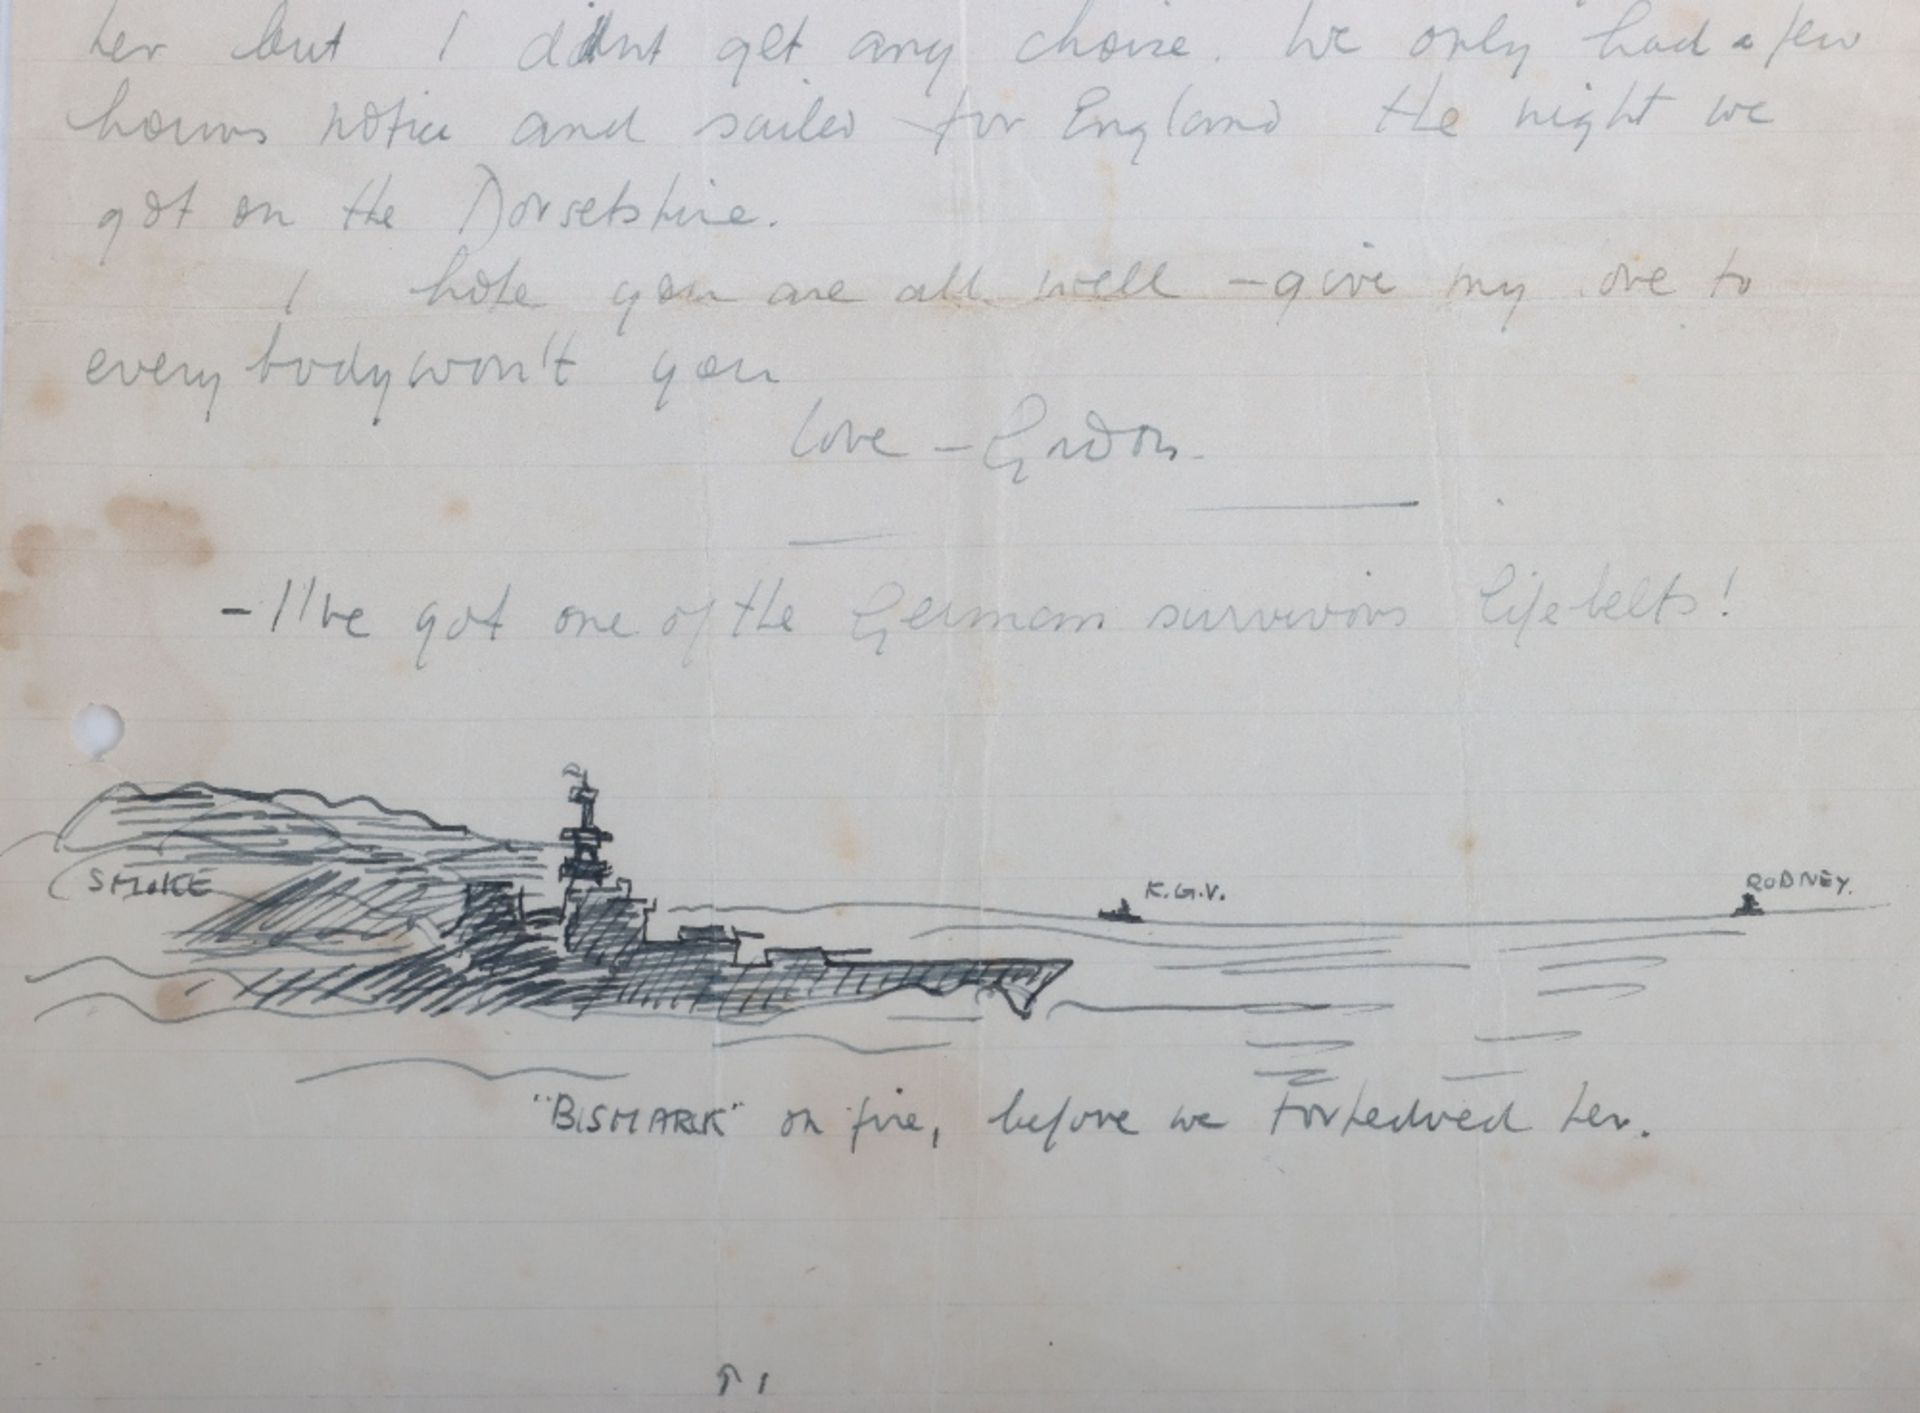 her but I didnt get any choice. We only had a few
hours notice and sailed for England the night we
got on the Dorsetshire.
I hope you are all well - give my love to
everybody won't you
Love - Gordon.
- I've got one of the German survivors lifebelts!
SMOKE
K.G.V.
RODNEY.
"BISMARK" on fire, before we torpedoed her.